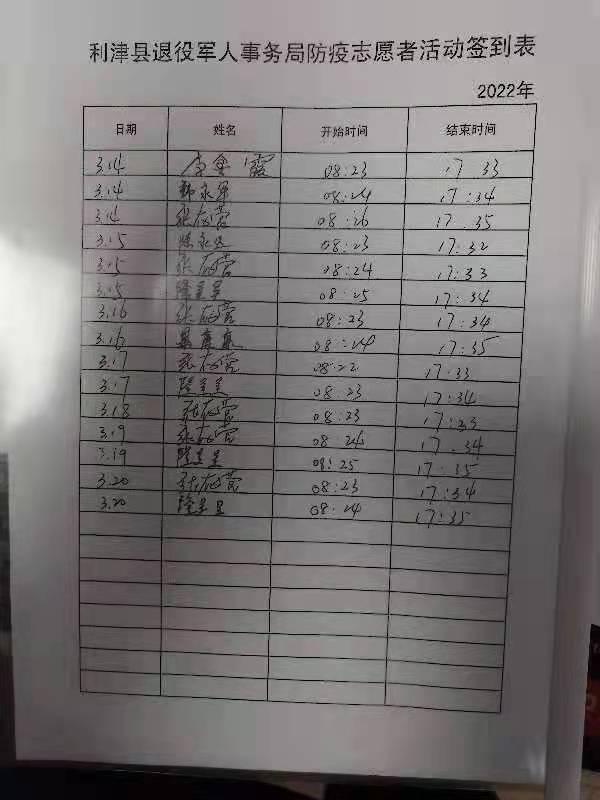 利津县退役军人事务局防疫志愿者活动签到表
2022年
日期 姓名 开始时间 结束时间
3.14 霞 08:23 17:33
3.14 郭永军 08:24 17:34
3.14 张存营 08:26 17:35
3.15 永 08:23 17:32
3.15 张存营 08:24 17:33
3.15 隆 08:25 17:34
3.16 张存营 08:23 17:34
3.16 08:24 17:35
3.17 张存营 08:22 17:33
3.17 隆 08:23 17:34
3.18 张存营 08:23 17:33
3.19 张存营 08:24 17:34
3.19 隆 08:25 17:35
3.20 张存营 08:23 17:34
3.20 隆 08:24 17:35